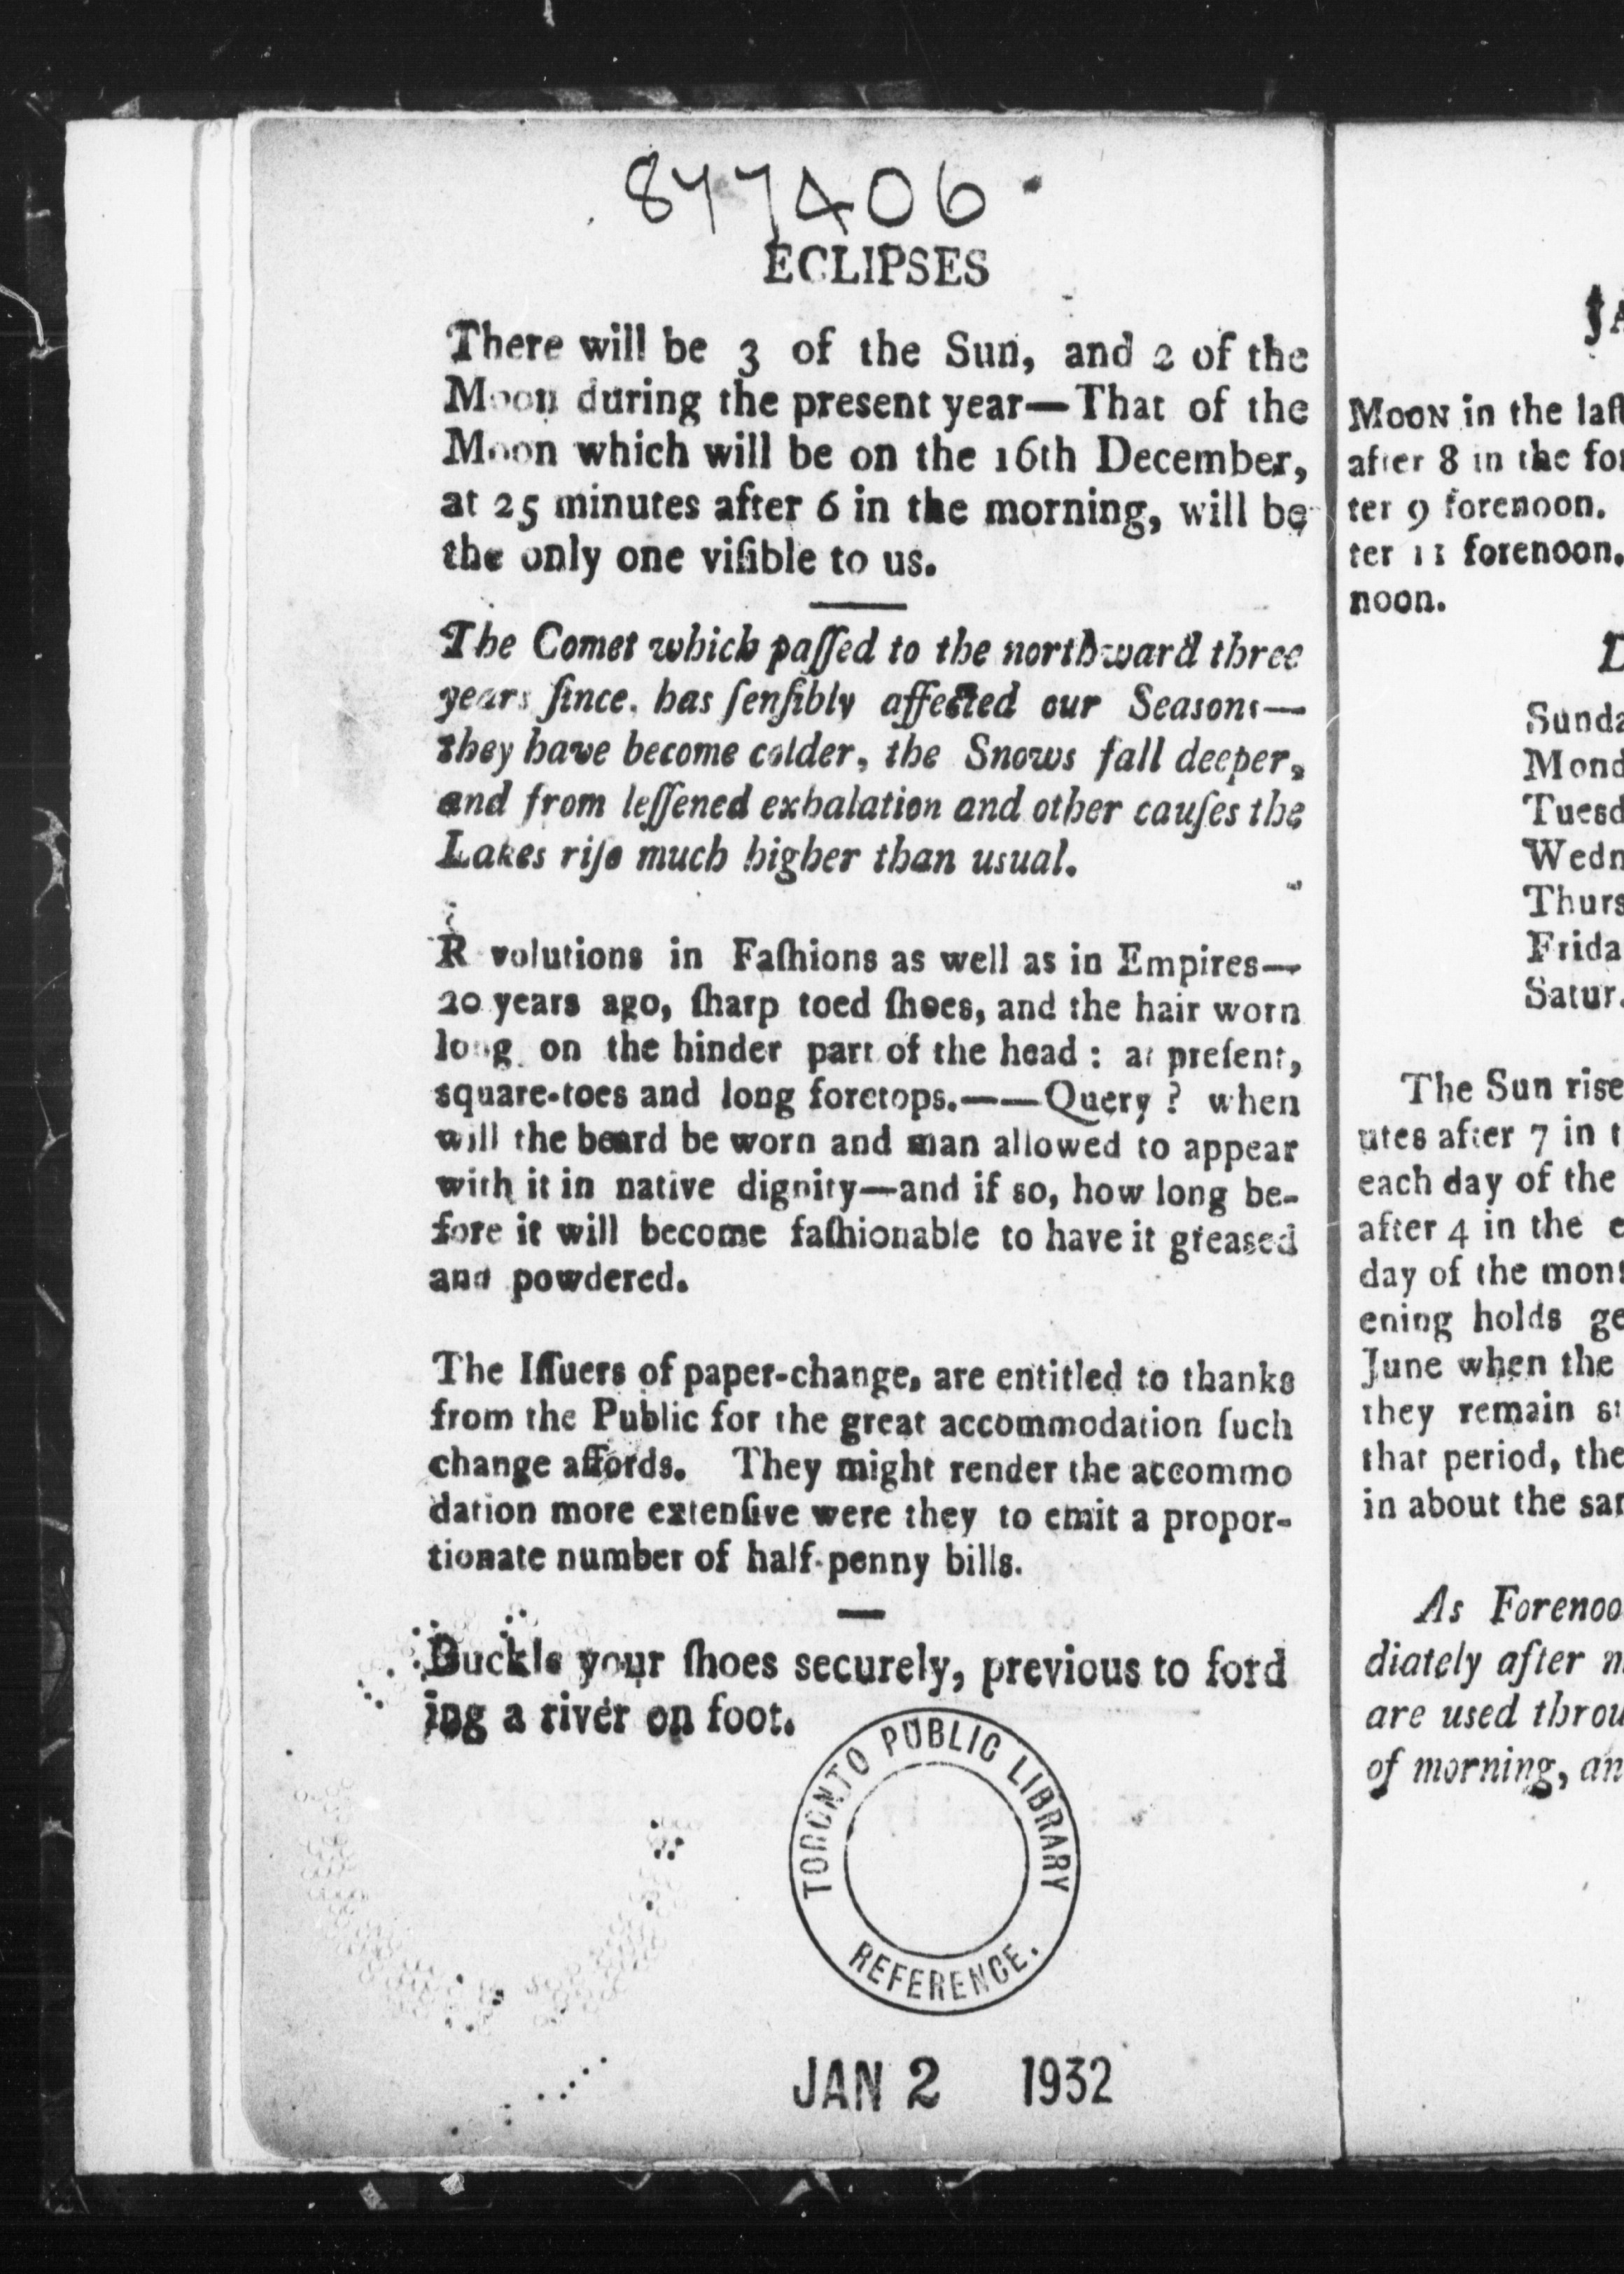 877406
ECLIPSES
There will be 3 of the Sun, and 2 of the
Moon during the present year—That of the
Moon which will be on the 16th December,
at 25 minutes after 6 in the morning, will be
the only one viſible to us.
The Comet which paſſed to the northward three
years ſince, has ſenſibly affected our Seasons—
they have become colder, the Snows fall deeper,
and from leſſened exhalation and other cauſes the
Lakes riſe much higher than usual.
R volutions in Faſhions as well as in Empires—
20 years ago, ſharp toed ſhoes, and the hair worn
long on the hinder part of the head : at preſent,
square-toes and long foretops.——Query ? when
will the beard be worn and man allowed to appear
with it in native dignity—and if so, how long be-
fore it will become faſhionable to have it greased
and powdered.
The Iſſuers of paper-change, are entitled to thanks
from the Public for the great accommodation ſuch
change affords. They might render the accommo
dation more extenſive were they to emit a propor-
tionate number of half-penny bills.
Buckle your ſhoes securely, previous to ford
ing a river on foot.
TORONTO PUBLIC LIBRARY
REFERENCE.
JAN 2 1932
JA
MOON in the laſt
after 8 in the for
ter 9 forenoon.
ter 11 forenoon,
noon.
D
Sunda
Mond
Tuesd
Wedn
Thurs
Frida
Satur.
The Sun rise
utes after 7 in t
each day of the
after 4 in the e
day of the mont
ening holds ge
June when the
they remain st
that period, the
in about the sam
As Forenoo
diately after n
are used throu
of morning, an